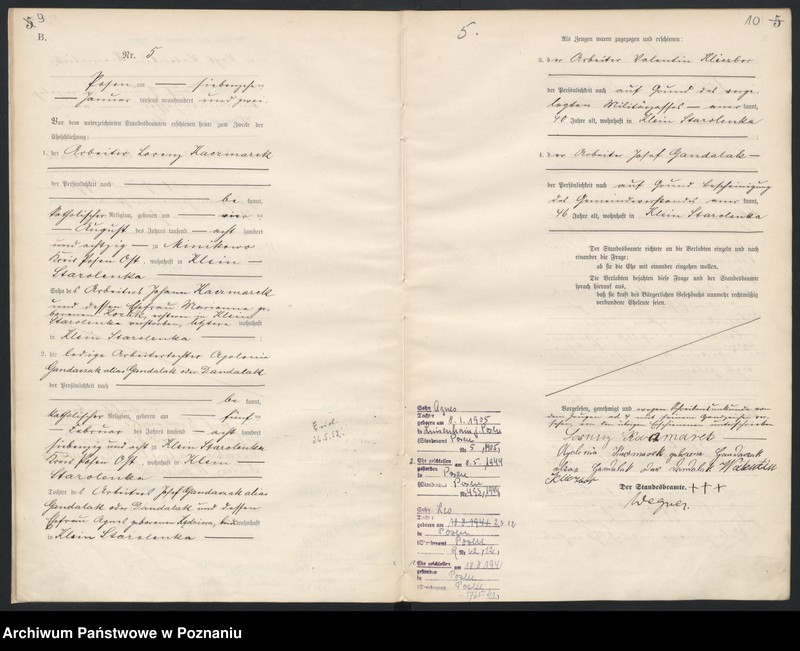 9
5
B.
Nr. 5
Posen am siebenzehn
Januar tausend neunhundert und zwei.
Vor dem unterzeichneten Standesbeamten erschienen heute zum Zwecke der
Eheschließung:
1. der Arbeiter Lorenz Kaczmarek
der Persönlichkeit nach
be kannt,
katholischer Religion, geboren am vier
August des Jahres tausend acht hundert
und achtzig zu Minikowo
Kreis Posen Ost, wohnhaft in Klein
Starolenka
Sohn des Arbeiters Johann Kaczmarek
und dessen Ehefrau Marianna ge-
borenen Kozak, ersterer zu Klein
Starolenka verstorben, letztere wohnhaft
in Klein Starolenka ;
2. die ledige Arbeitertochter Apolonia
Gandazak alias Gandalak oder Dandalak
der Persönlichkeit nach
be kannt,
katholischer Religion, geboren am fünf
Februar des Jahres tausend acht hundert
siebenzig und acht zu Klein Starolenka
Kreis Posen Ost, wohnhaft in Klein
Starolenka
Tochter des Arbeiters Josef Gandazak alias
Gandalak oder Dandalak und dessen
Ehefrau Agnes geborenen wohnhaft
in Klein Starolenka
26.5.52.
5.
10 5
Als Zeugen waren zugezogen und erschienen:
3. der Arbeiter Valentin
der Persönlichkeit nach auf Grund des vorge-
legten Militärpasses aner kannt,
40 Jahre alt, wohnhaft in Klein Starolenka
;
4. der Arbeiter Josef Gandalak
der Persönlichkeit nach auf Grund Bescheinigung
des Gemeindevorstandes aner kannt,
46 Jahre alt, wohnhaft in Klein Starolenka
Der Standesbeamte richtete an die Verlobten einzeln und nach
einander die Frage:
ob sie die Ehe mit einander eingehen wollen.
Die Verlobten bejahten diese Frage und der Standesbeamte
sprach hierauf aus,
daß sie kraft des Bürgerlichen Gesetzbuchs nunmehr rechtmäßig
verbundene Eheleute seien.
Vorgelesen, genehmigt und wegen Schreibensunkunde von
dem Zeugen ad 4 mit seinem Handzeichen ver-
sehen, von den übrigen Erschienenen unterschrieben
Lorenz Kaczmarek
Apolonia Kaczmarek geborene Gandazak
alias Gandalak oder Dandalak Walentin
+++
Der Standesbeamte.
Wegner
Agnes
Tochter
geboren am 8.1.1905
in Posen
(Standesamt Posen
Nr 5 1905)
2. Ehe geschlossen am 8.5.1944
in Posen
(Standesamt Posen
Sohn Leo
geboren am
in Posen
Ehe geschlossen am
in Posen
(Standesamt Posen
Archiwum Państwowe w Poznaniu